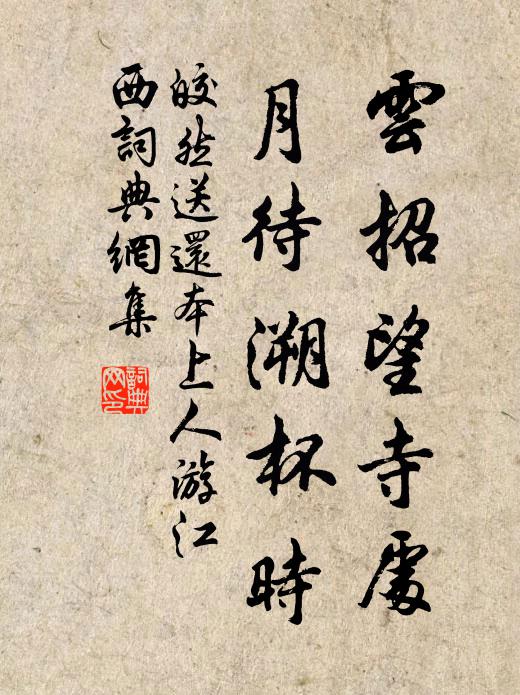 雲招望寺處
月待溯杯時
皎然送還本上人游江
西詞典網集
詞典
网印